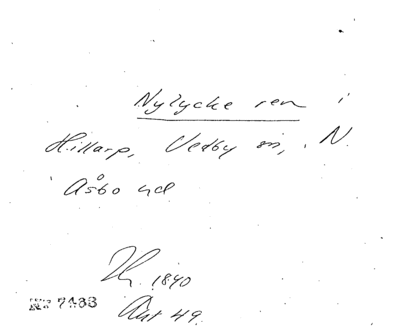 Nylycke ren i
Hillarp, Vedby sn, N.
Åsbo hd
1840
Akt 49.
Nr 7433